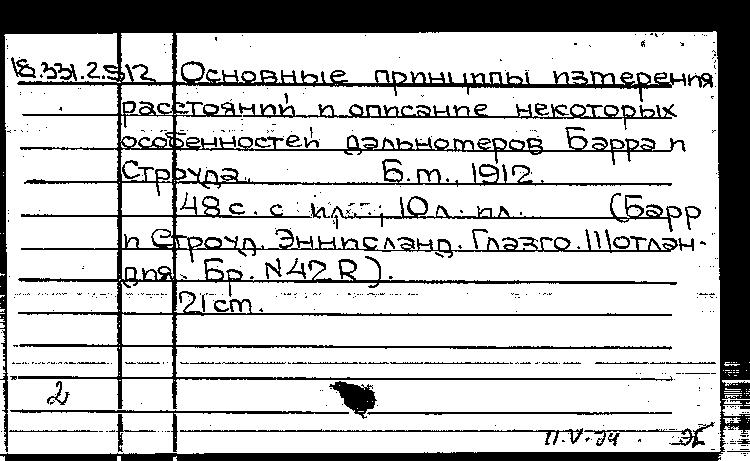 18.331.2.512 Основные принципы измерения
расстояний и описание некоторых
особенностей дальномеров Барра и
Струда. Б.м., 1912.
48 с. с ил.; 10 л. ил. (Барр
и Строуд. Эннисланд. Глазго. Шотлан-
дия. Бр. N42 R).
21 cm.
2
11.V.94